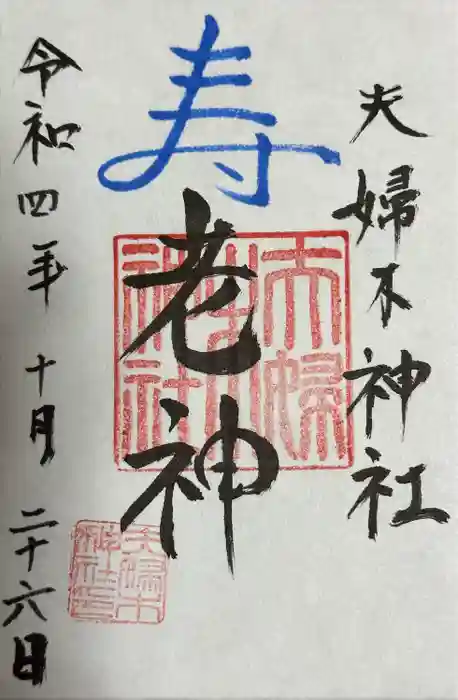 夫婦木神社
寿
老神
夫婦木神社
令和四年十月二十六日